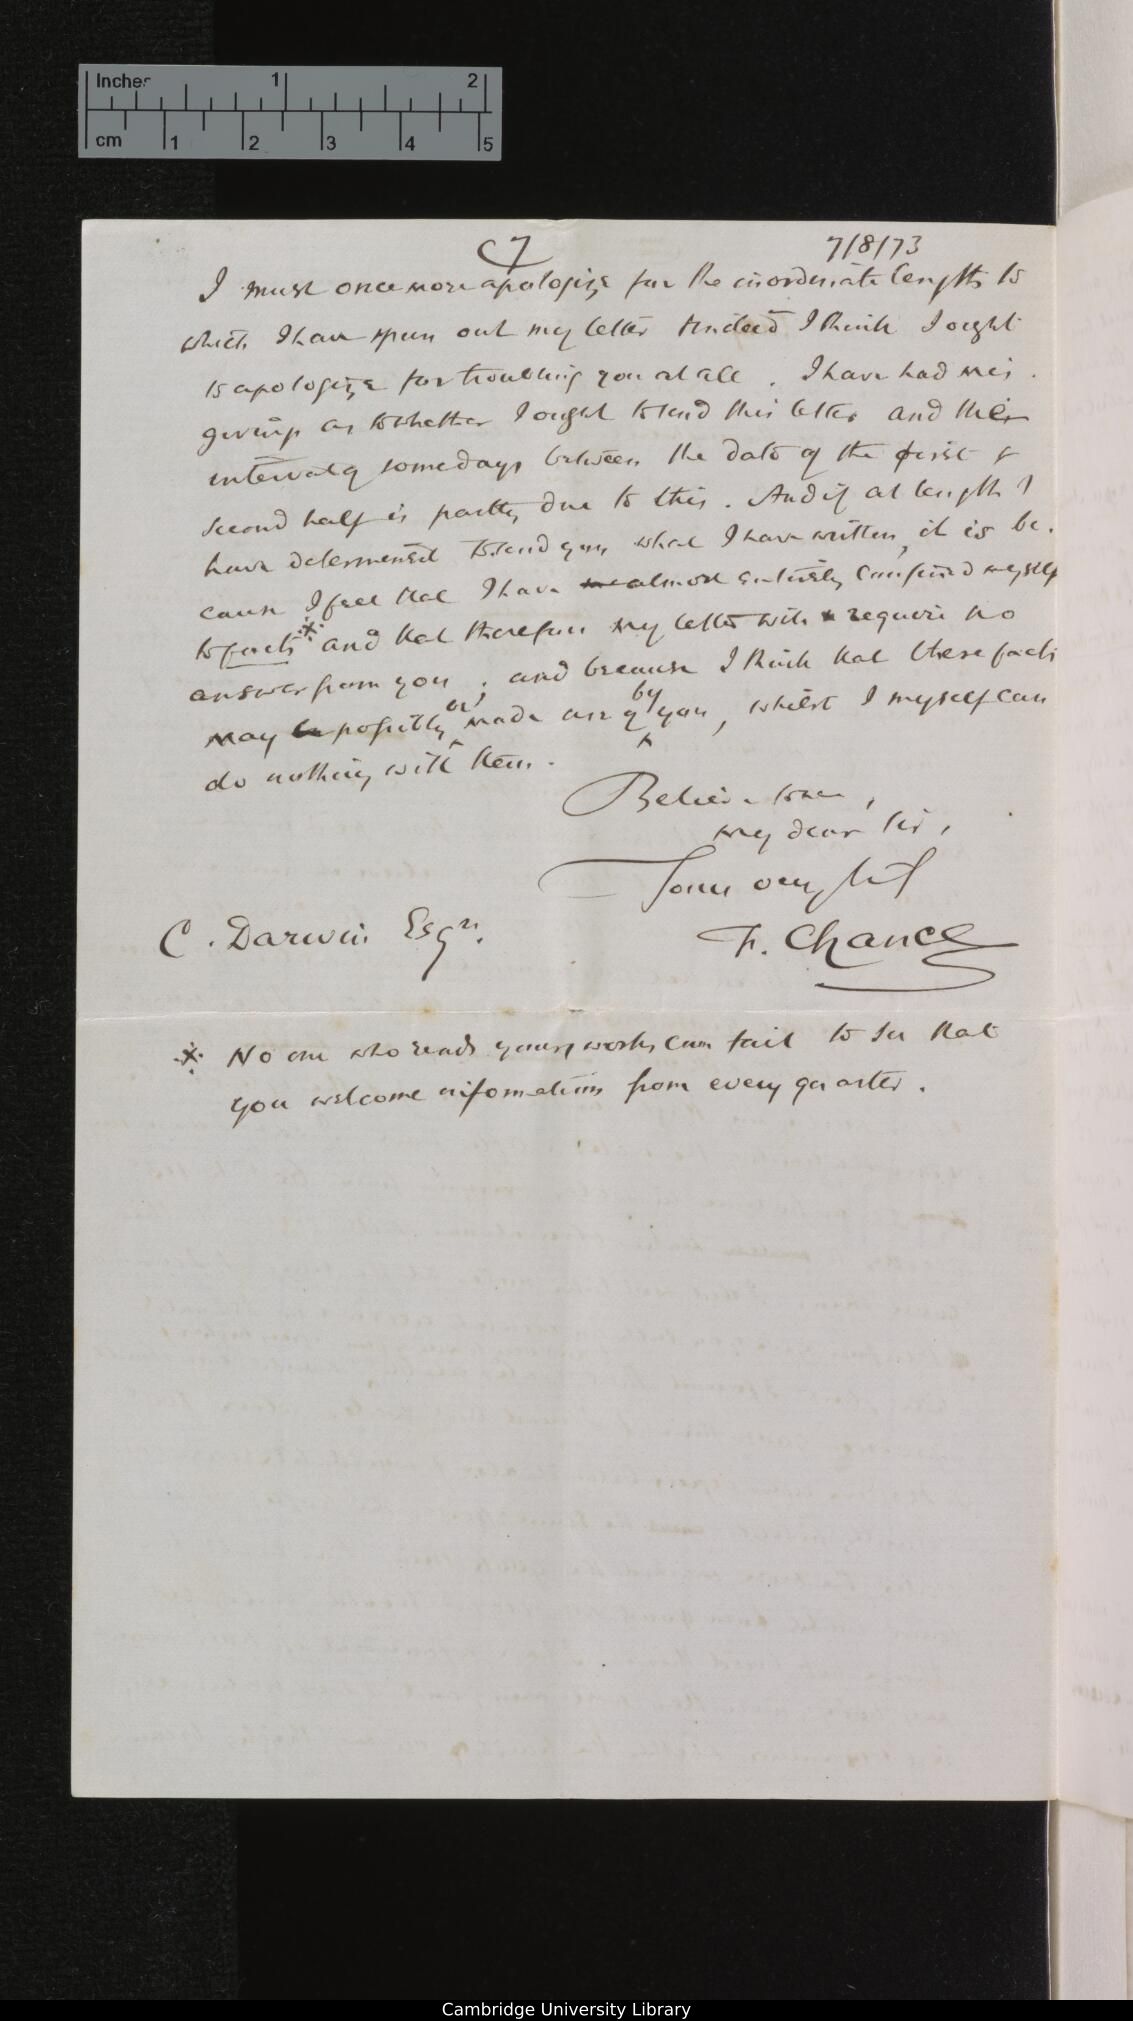 Inches 1 2
cm 1 2 3 4 5
C7 7/8/73
I must once more apologize for the inordinate length to
which I have spun out my letter Indeed I think I ought
to apologize for troubling you at all. I have had mis-
givings as to whether I ought to send this letter and the
interval of some days between the date of the first &
second half is partly due to this. And if at length I
have determined to send you what I have written, it is be-
cause I feel that I have almost entirely confined myself
to facts* and that therefore my letter will require no
answer from you; and because I think that these facts
may possibly be made use of by you, whilst I myself can
do nothing with them.
Believe me,
my dear Sir,
Yours very truly
C. Darwin Esqre. F. Chance
* No one who reads your works can fail to see that
you welcome information from every quarter.
Cambridge University Library